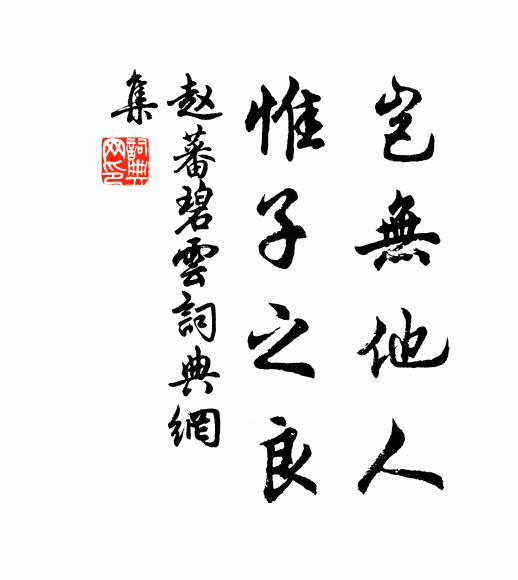 豈無他人
惟子之良
赵蕃碧雲詞典網
集
詞典网印